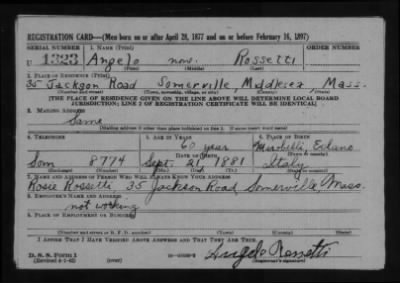 REGISTRATION CARD—(Men born on or after April 28, 1877 and on or before February 16, 1897)
SERIAL NUMBER 1. NAME (Print)
U 1323 Angelo none Rossetti
(First) (Middle) (Last)
2. PLACE OF RESIDENCE (Print)
35 Jackson Road Somerville, Middlesex Mass.
(Number and street) (Town, township, village, or city) (County) (State)
[THE PLACE OF RESIDENCE GIVEN ON THE LINE ABOVE WILL DETERMINE LOCAL BOARD
JURISDICTION; LINE 2 OF REGISTRATION CERTIFICATE WILL BE IDENTICAL]
3. MAILING ADDRESS
Same
[Mailing address if other than place indicated on line 2. If same insert word same]
4. TELEPHONE 5. AGE IN YEARS 6. PLACE OF BIRTH
60 year Mirabelli, Eclano
DATE OF BIRTH (Town or county)
Som 8774 Sept. 21, 1881 Italy
(Exchange) (Number) (Mo.) (Day) (Yr.) (State or country)
7. NAME AND ADDRESS OF PERSON WHO WILL ALWAYS KNOW YOUR ADDRESS
Rosie Rossetti 35 Jackson Road Somerville Mass.
8. EMPLOYER'S NAME AND ADDRESS
not working
9. PLACE OF EMPLOYMENT OR BUSINESS
(Number and street or R. F. D. number) (Town) (County) (State)
I AFFIRM THAT I HAVE VERIFIED ABOVE ANSWERS AND THAT THEY ARE TRUE.
D. S. S. Form 1 Angelo Rossetti
(over) (Registrant's signature)